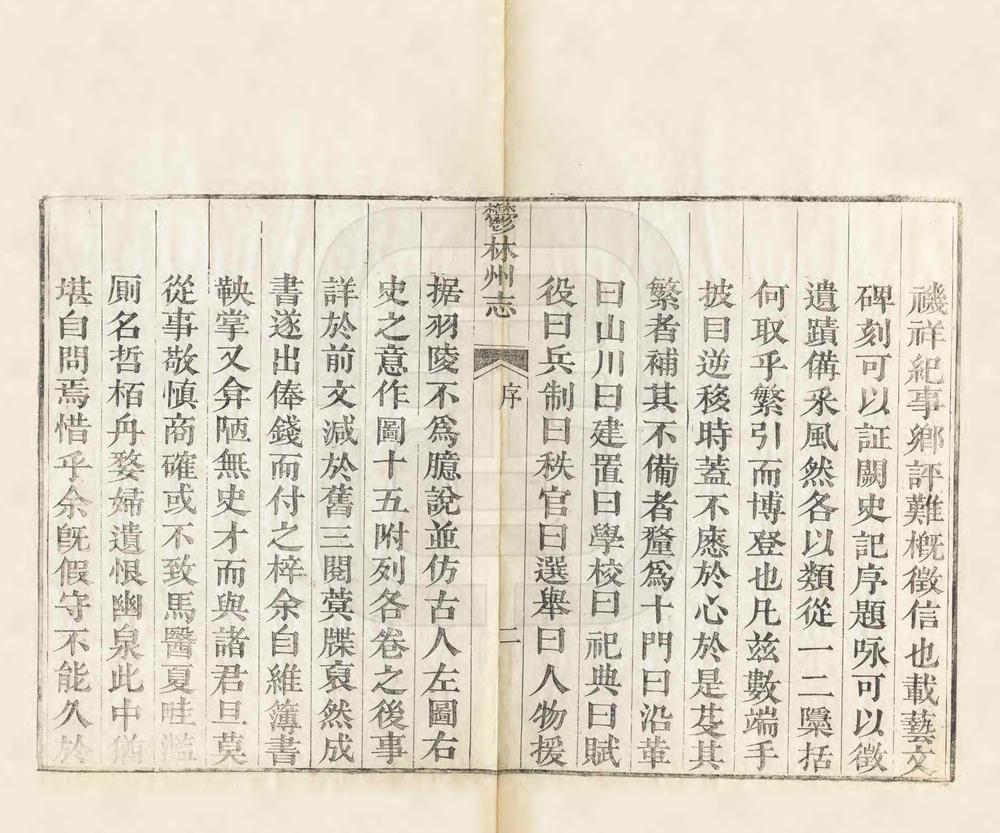 禨祥紀事鄉評難概徵信也載藝文
碑刻可以証闕史記序題咏可以徵
遺蹟備采風然各以類從一二檃括
何取乎繁引而博登也凡兹數端手
披曰逆移時蓋不慝於心於是芟其
繁者補其不備者釐爲十門曰沿革
曰山川曰建置曰學校曰祀典曰賦
役曰兵制曰秩官曰選舉曰人物援
鬱林州志
序
二
据羽陵不爲臆說並仿古人左圖右
史之意作圖十五附列各卷之後事
詳於前文減於舊三閱蓂牒裒然成
書遂出俸錢而付之梓余自維簿書
鞅掌又弇陋無史才而與諸君旦莫
從事敬慎商確或不致馬醫夏畦濫
厠名哲栢舟婺婦遺恨幽泉此中猶
堪自問焉惜乎余旣假守不能久於